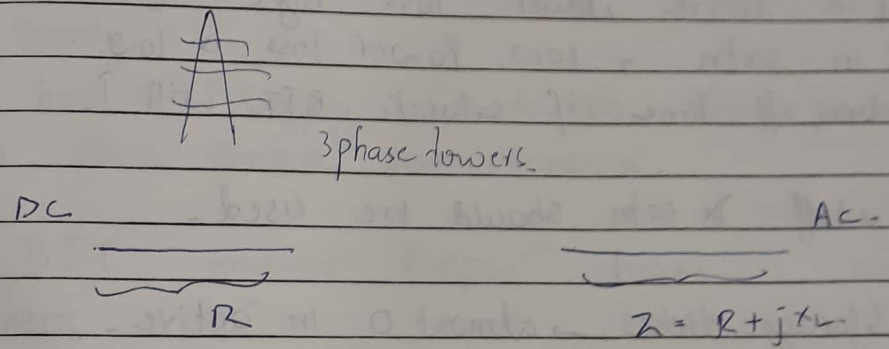 3 phase towers.
DC AC.
R Z = R + jXL.